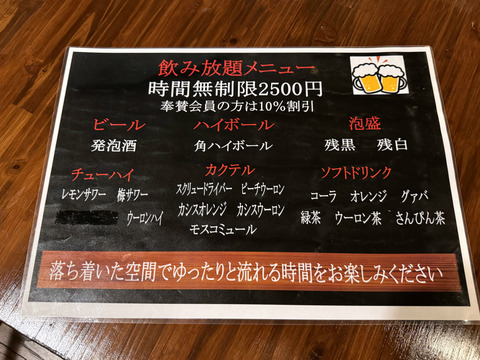 飲み放題メニュー
時間無制限2500円
奉賛会員の方は10%割引
ビール
発泡酒
ハイボール
角ハイボール
泡盛
残黒 残白
チューハイ
レモンサワー 梅サワー
ウーロンハイ
カクテル
スクリュードライバー ピーチウーロン
カシスオレンジ カシスウーロン
モスコミュール
ソフトドリンク
コーラ オレンジ グァバ
緑茶 ウーロン茶 さんぴん茶
落ち着いた空間でゆったりと流れる時間をお楽しみください